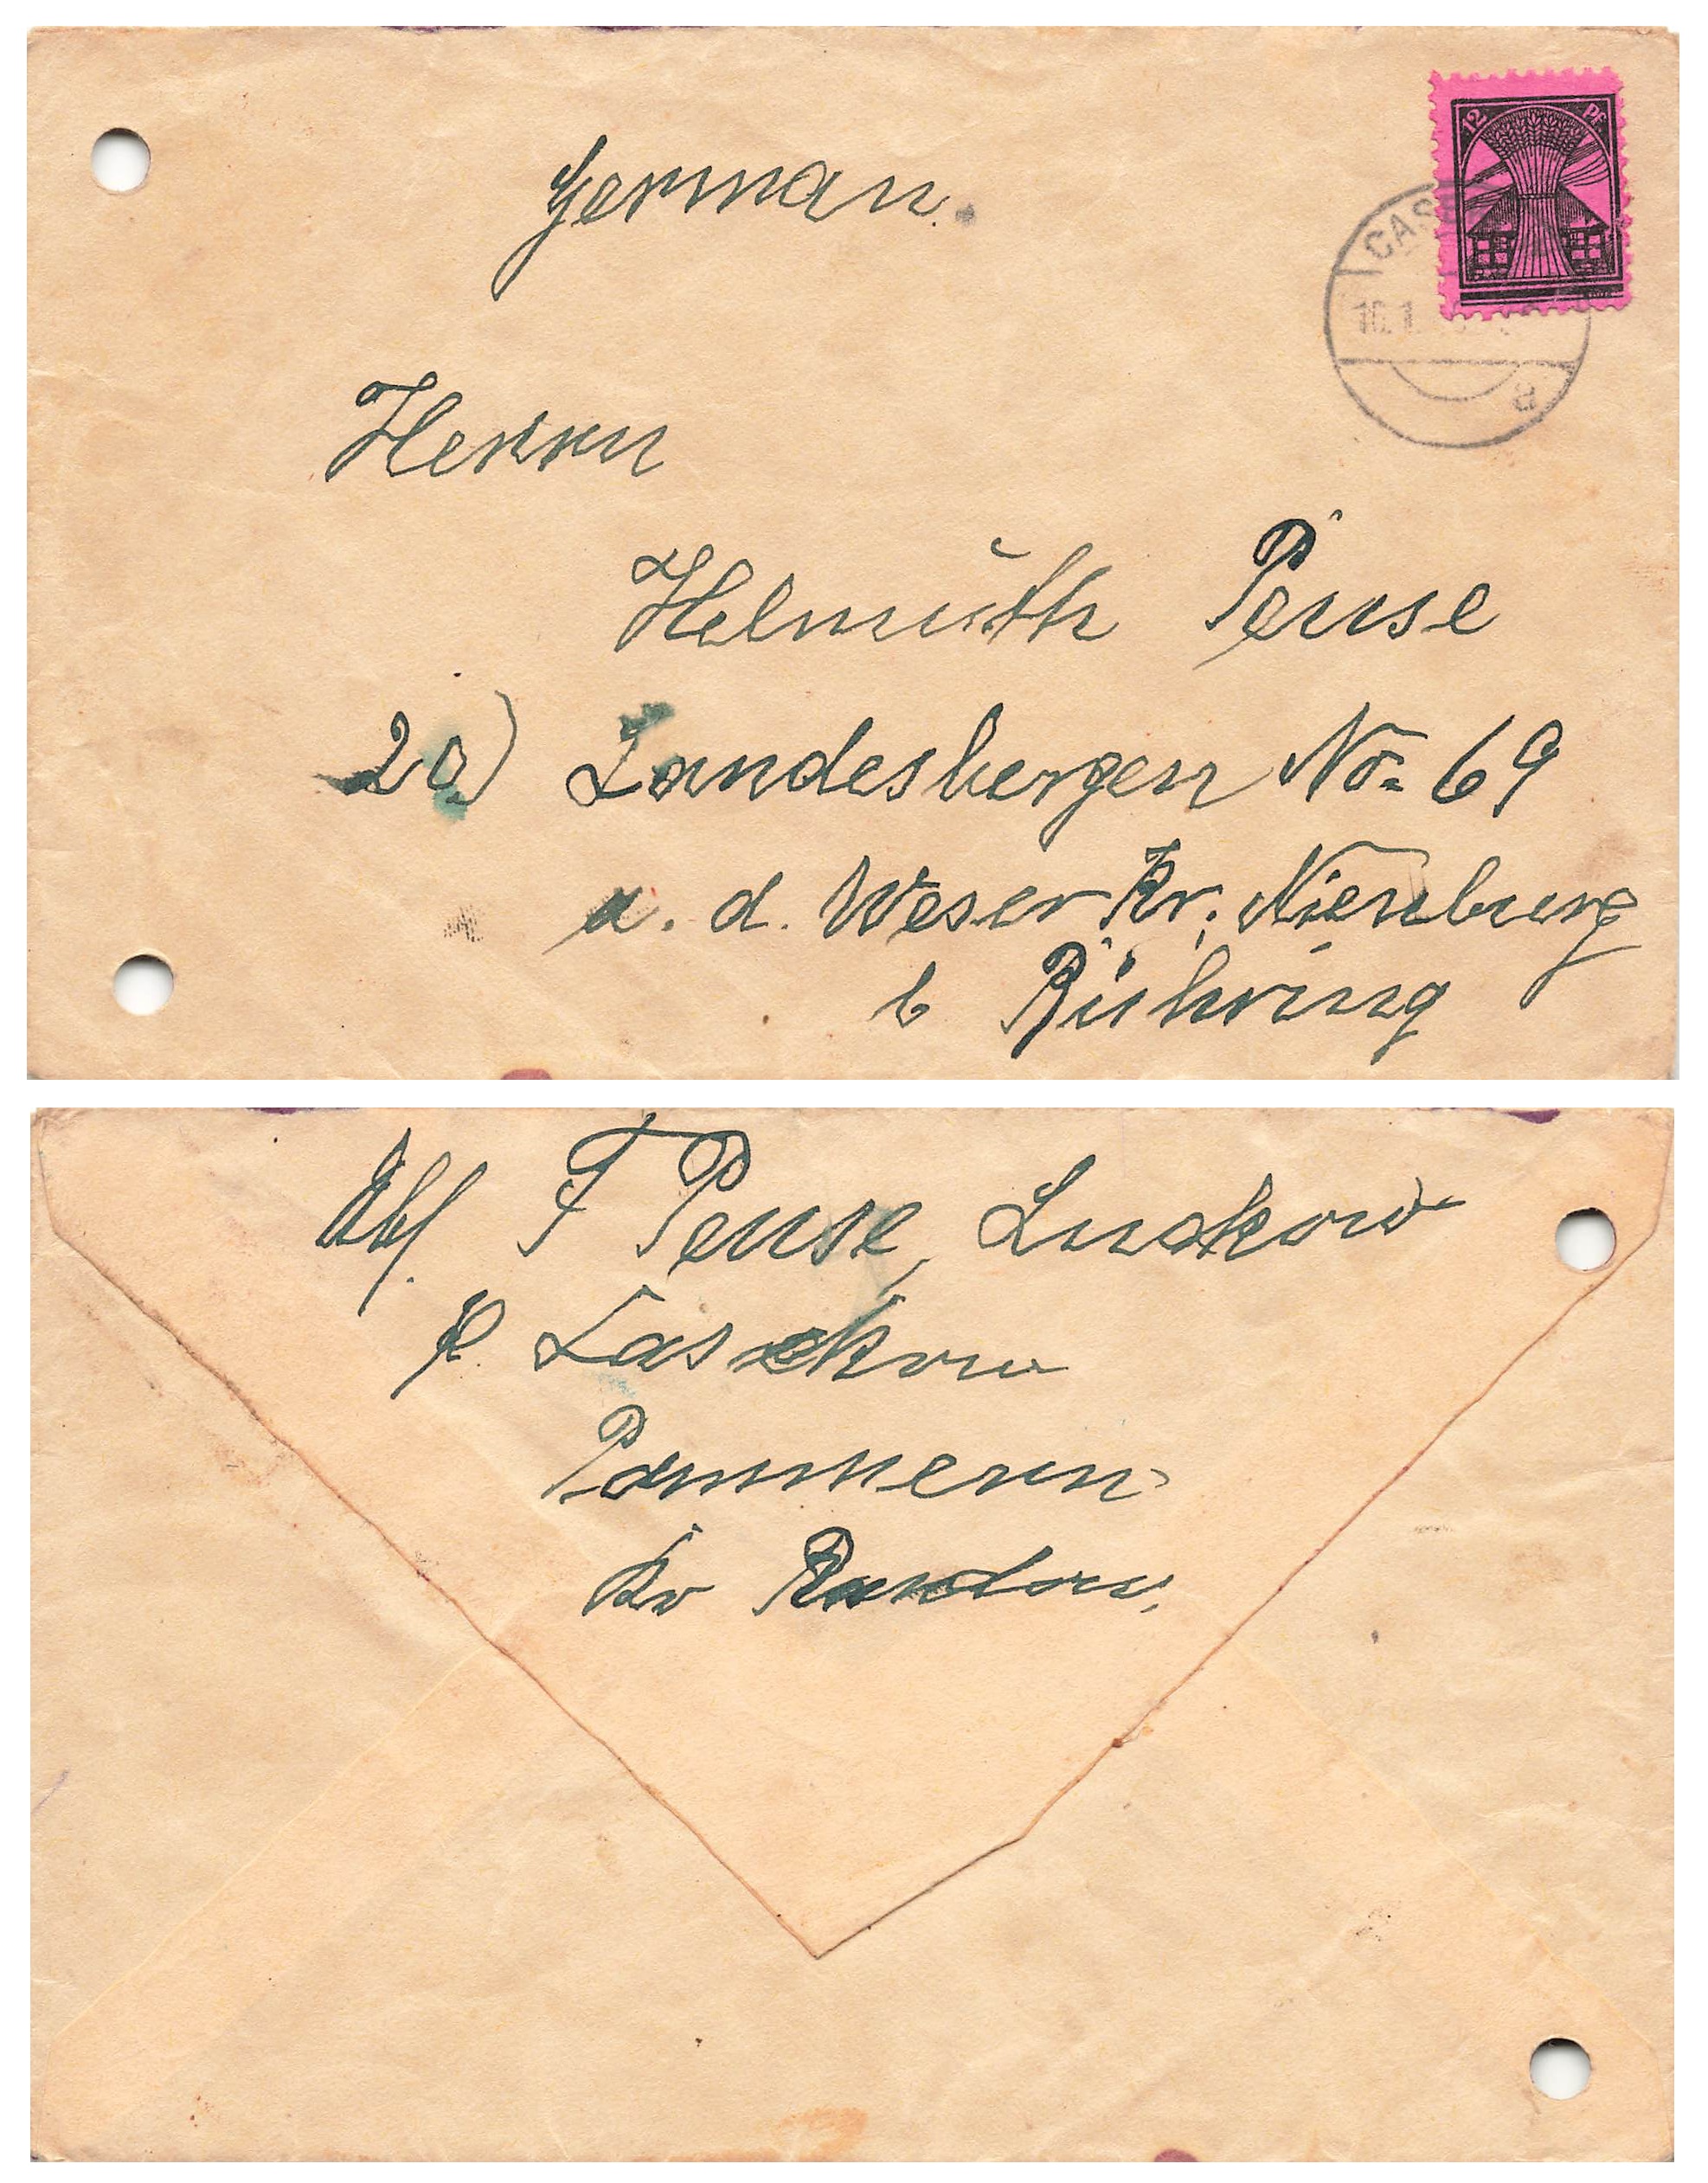 German.
12 Pf
CAS
10.1.
a
Herrn
Helmuth Peuse
20) Landesbergen No= 69
a. d. Weser Kr. Nienburg
b Rühring
Abs. F Peuse, Luckow
p. Lasckow
Pommern
Kr Randow.